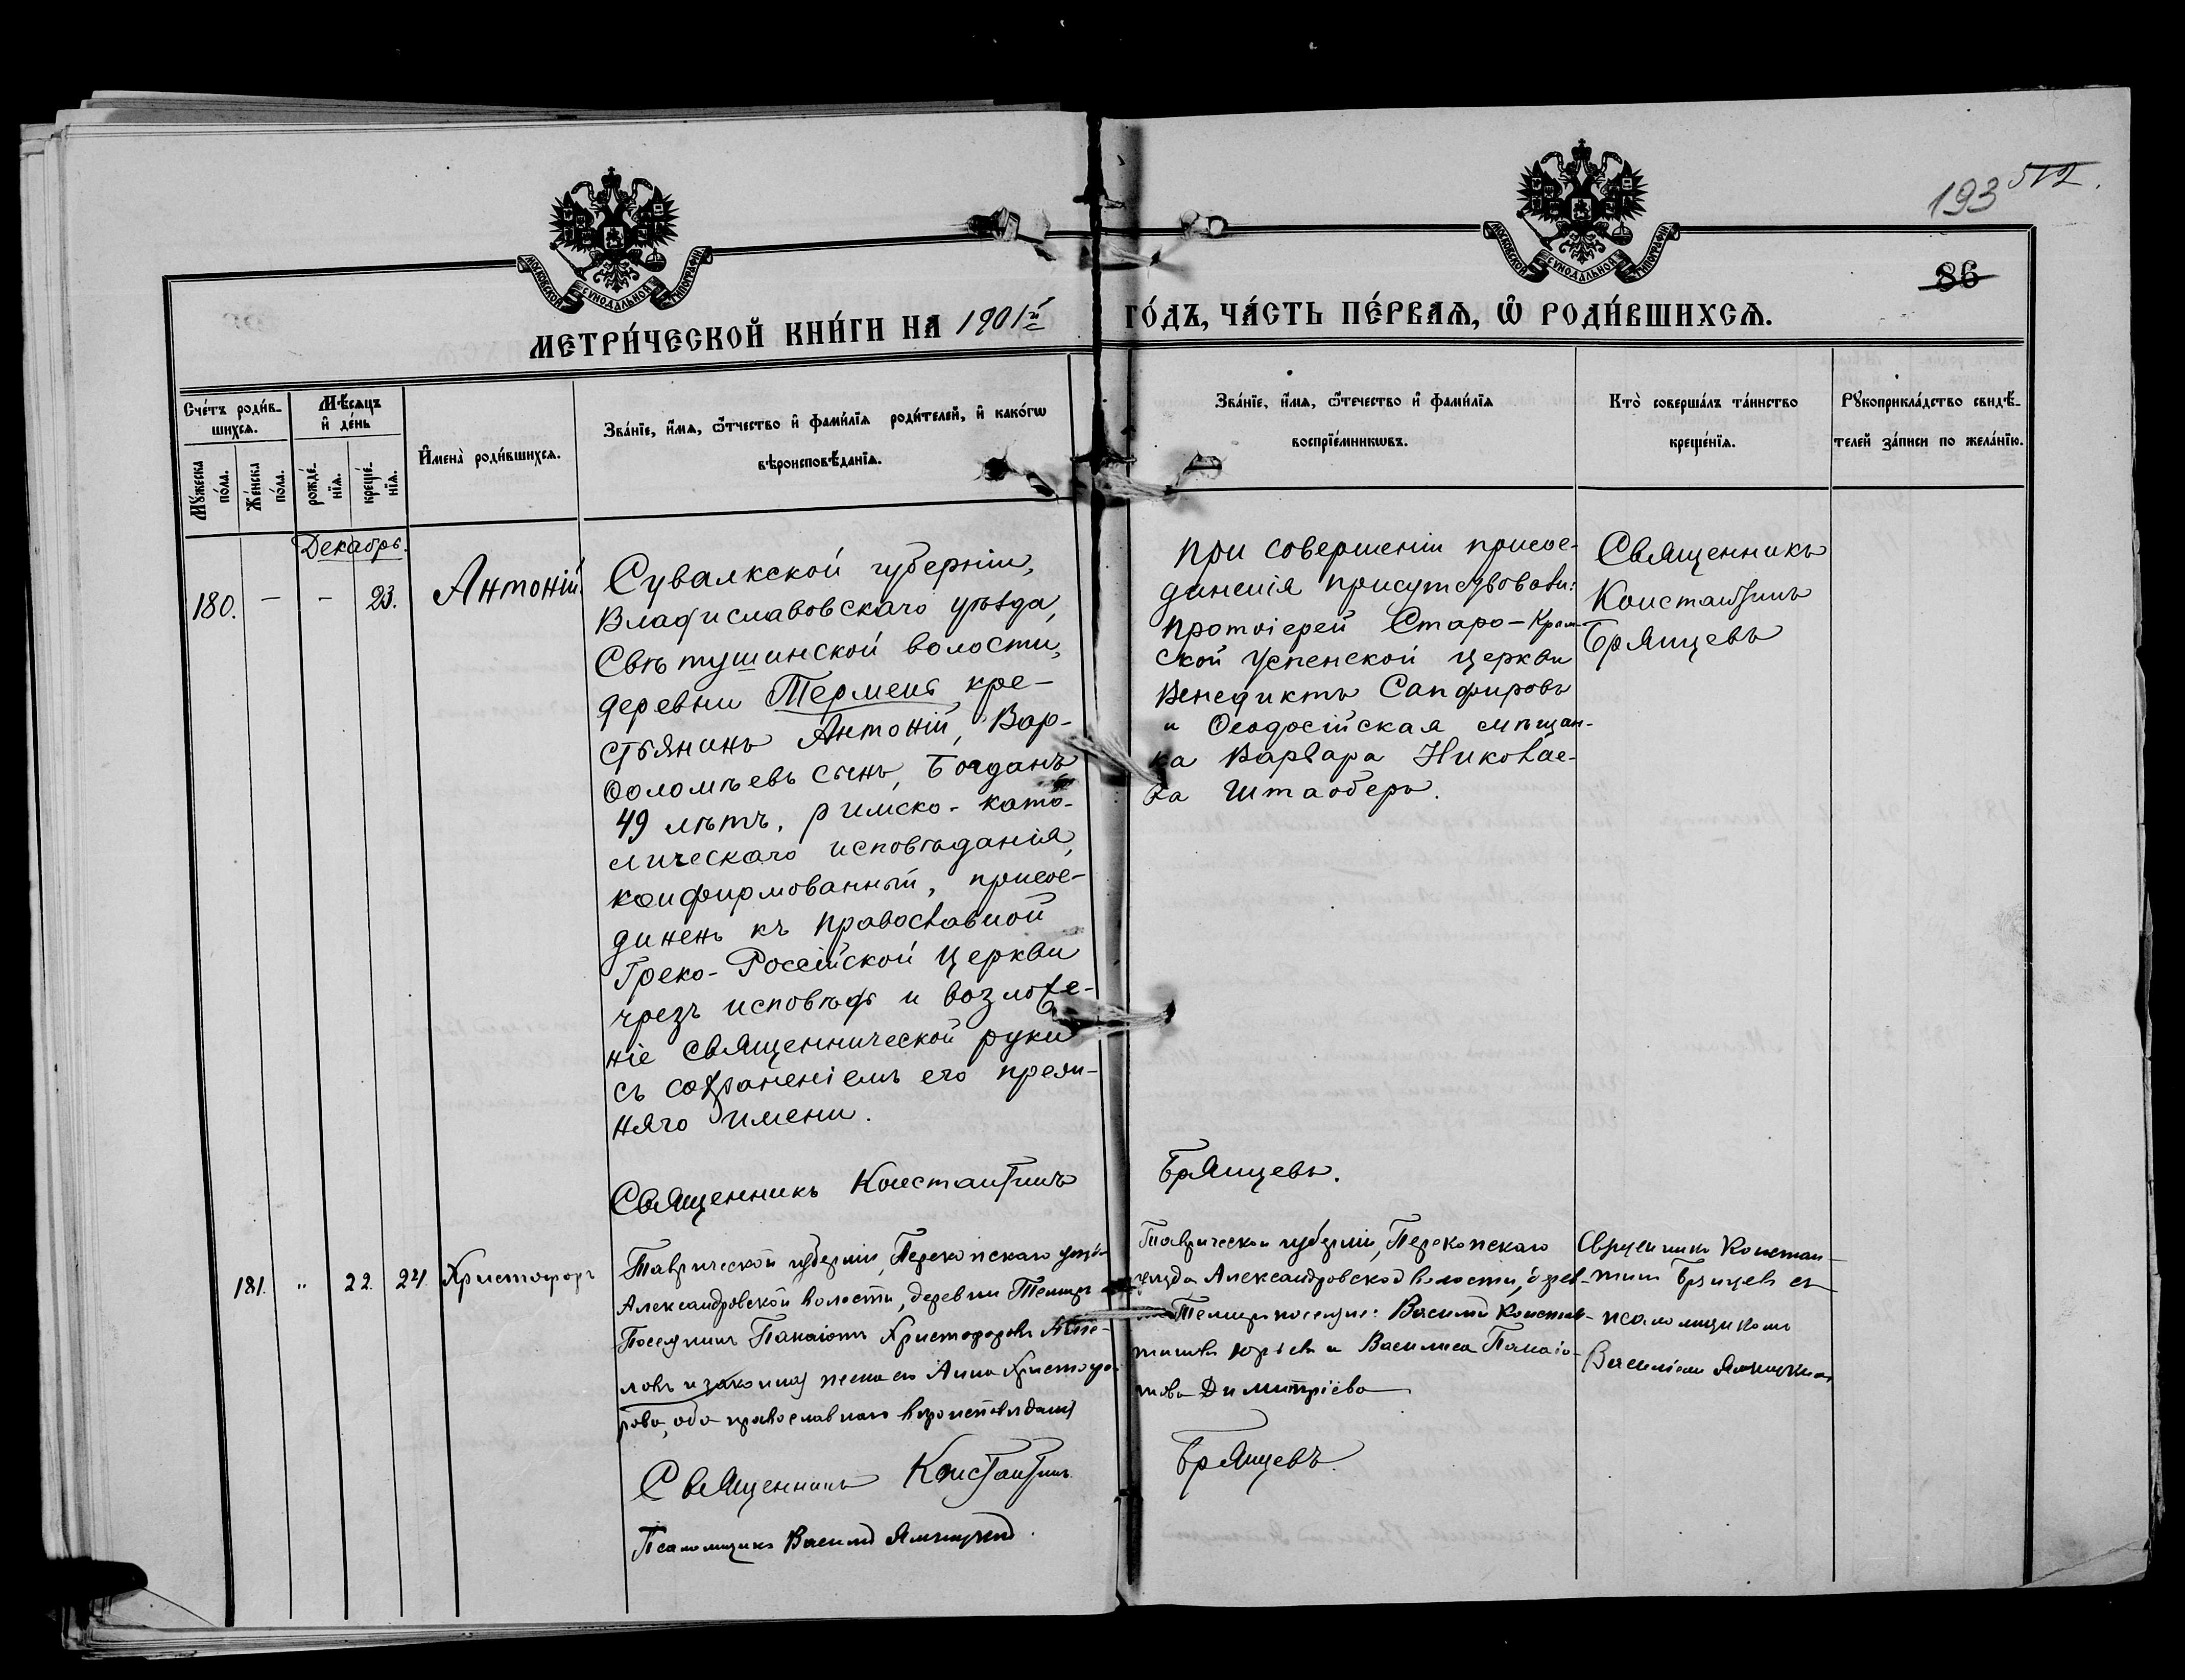 193 512.
86
МОСКОВСКОЙ СѴНОДАЛЬНОЙ ТИПОГРАФІИ
МОСКОВСКОЙ СѴНОДАЛЬНОЙ ТИПОГРАФІИ
МЕТРИ́ЧЕСКОЙ КНИ́ГИ НА 1901й ГО́ДЪ, ЧА́СТЬ ПЕ́РВАѦ, Ѿ РОДИ́ВШИХСѦ.
Сче́тъ роди́в-
шихсѧ.
Мꙋжеска
по́ла.
Же́нска
по́ла.
Мѣ́сѧцъ
и҆ де́нь
рожде́-
нїѧ.
креще́-
нїѧ.
И҆мена̀ роди́вшихсѧ.
Зва́нїе, и҆́мѧ, ѻ҆́тчество и҆ фами́лїѧ роди́телей, и҆ како́гѡ
вѣроисповѣ́данїѧ.
Зва́нїе, и҆́мѧ, ѻ҆́течество и҆ фами́лїѧ
воспрїе́мникѡвъ.
Кто̀ соверша́лъ та́инство
креще́нїѧ.
Рꙋкоприкла́дство свидѣ́-
телей за́писи по жела́нїю.
Декабрь.
180. — — 23. Антоній.
Сувалкской губерніи,
Владиславовскаго уѣзда,
Свѣтушинской волости,
деревни Термена кре-
стьянинъ Антоній, Вар-
ѳоломѣевъ сынъ, Богданъ
49 лѣтъ, римско-като-
лическаго исповѣданія,
конфирмованный, присое-
диненъ къ православной
Греко-Россійской Церкви
чрезъ исповѣдь и возложе-
ніе священнической руки
съ сохраненіемъ его преж-
няго имени.
При совершеніи присое-
диненія присутствовали:
протоіерей Старо-Крым-
ской Успенской церкви
Венедиктъ Сапфировъ
и Ѳеодосійская мѣщан-
ка Варвара Николае-
ва Штаоберъ.
Священникъ
Константинъ
Брянцевъ
Священникъ Константинъ Брянцевъ.
181. „ 22. 24. Христофоръ
Таврической губерніи, Перекопскаго уѣзда
Александровской волости, деревни
Поселянинъ Панаіотъ Христофоровъ
и законная жена его Анна Христофо-
рова, оба православнаго вѣроисповѣданія
Таврической губерніи, Перекопскаго
уѣзда Александровской волости, дерев-
поселяне: Василій Констан-
тиновъ Юрьевъ и Василиса Панаіо-
това Димитріева
Священникъ Констан-
тинъ Брянцевъ съ
псаломщикомъ
Василіемъ
Священникъ Константинъ Брянцевъ.
Псаломщикъ Василій